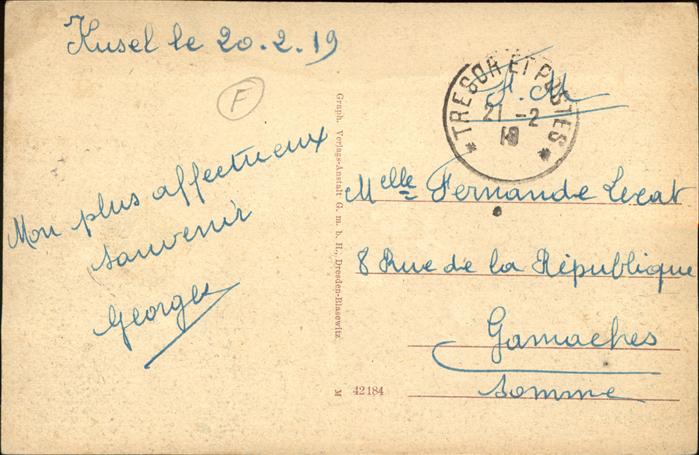 Kusel le 20.2.19
F
Mon plus affectueux
souvenir
Georges
Graph. Verlags-Anstalt G. m. b. H., Dresden-Blasewitz.
M 42184
* TRESOR ET POSTES *
21 -2
F. M.
Melle Fernande Lecat
8 Rue de la République
Gamaches
Somme